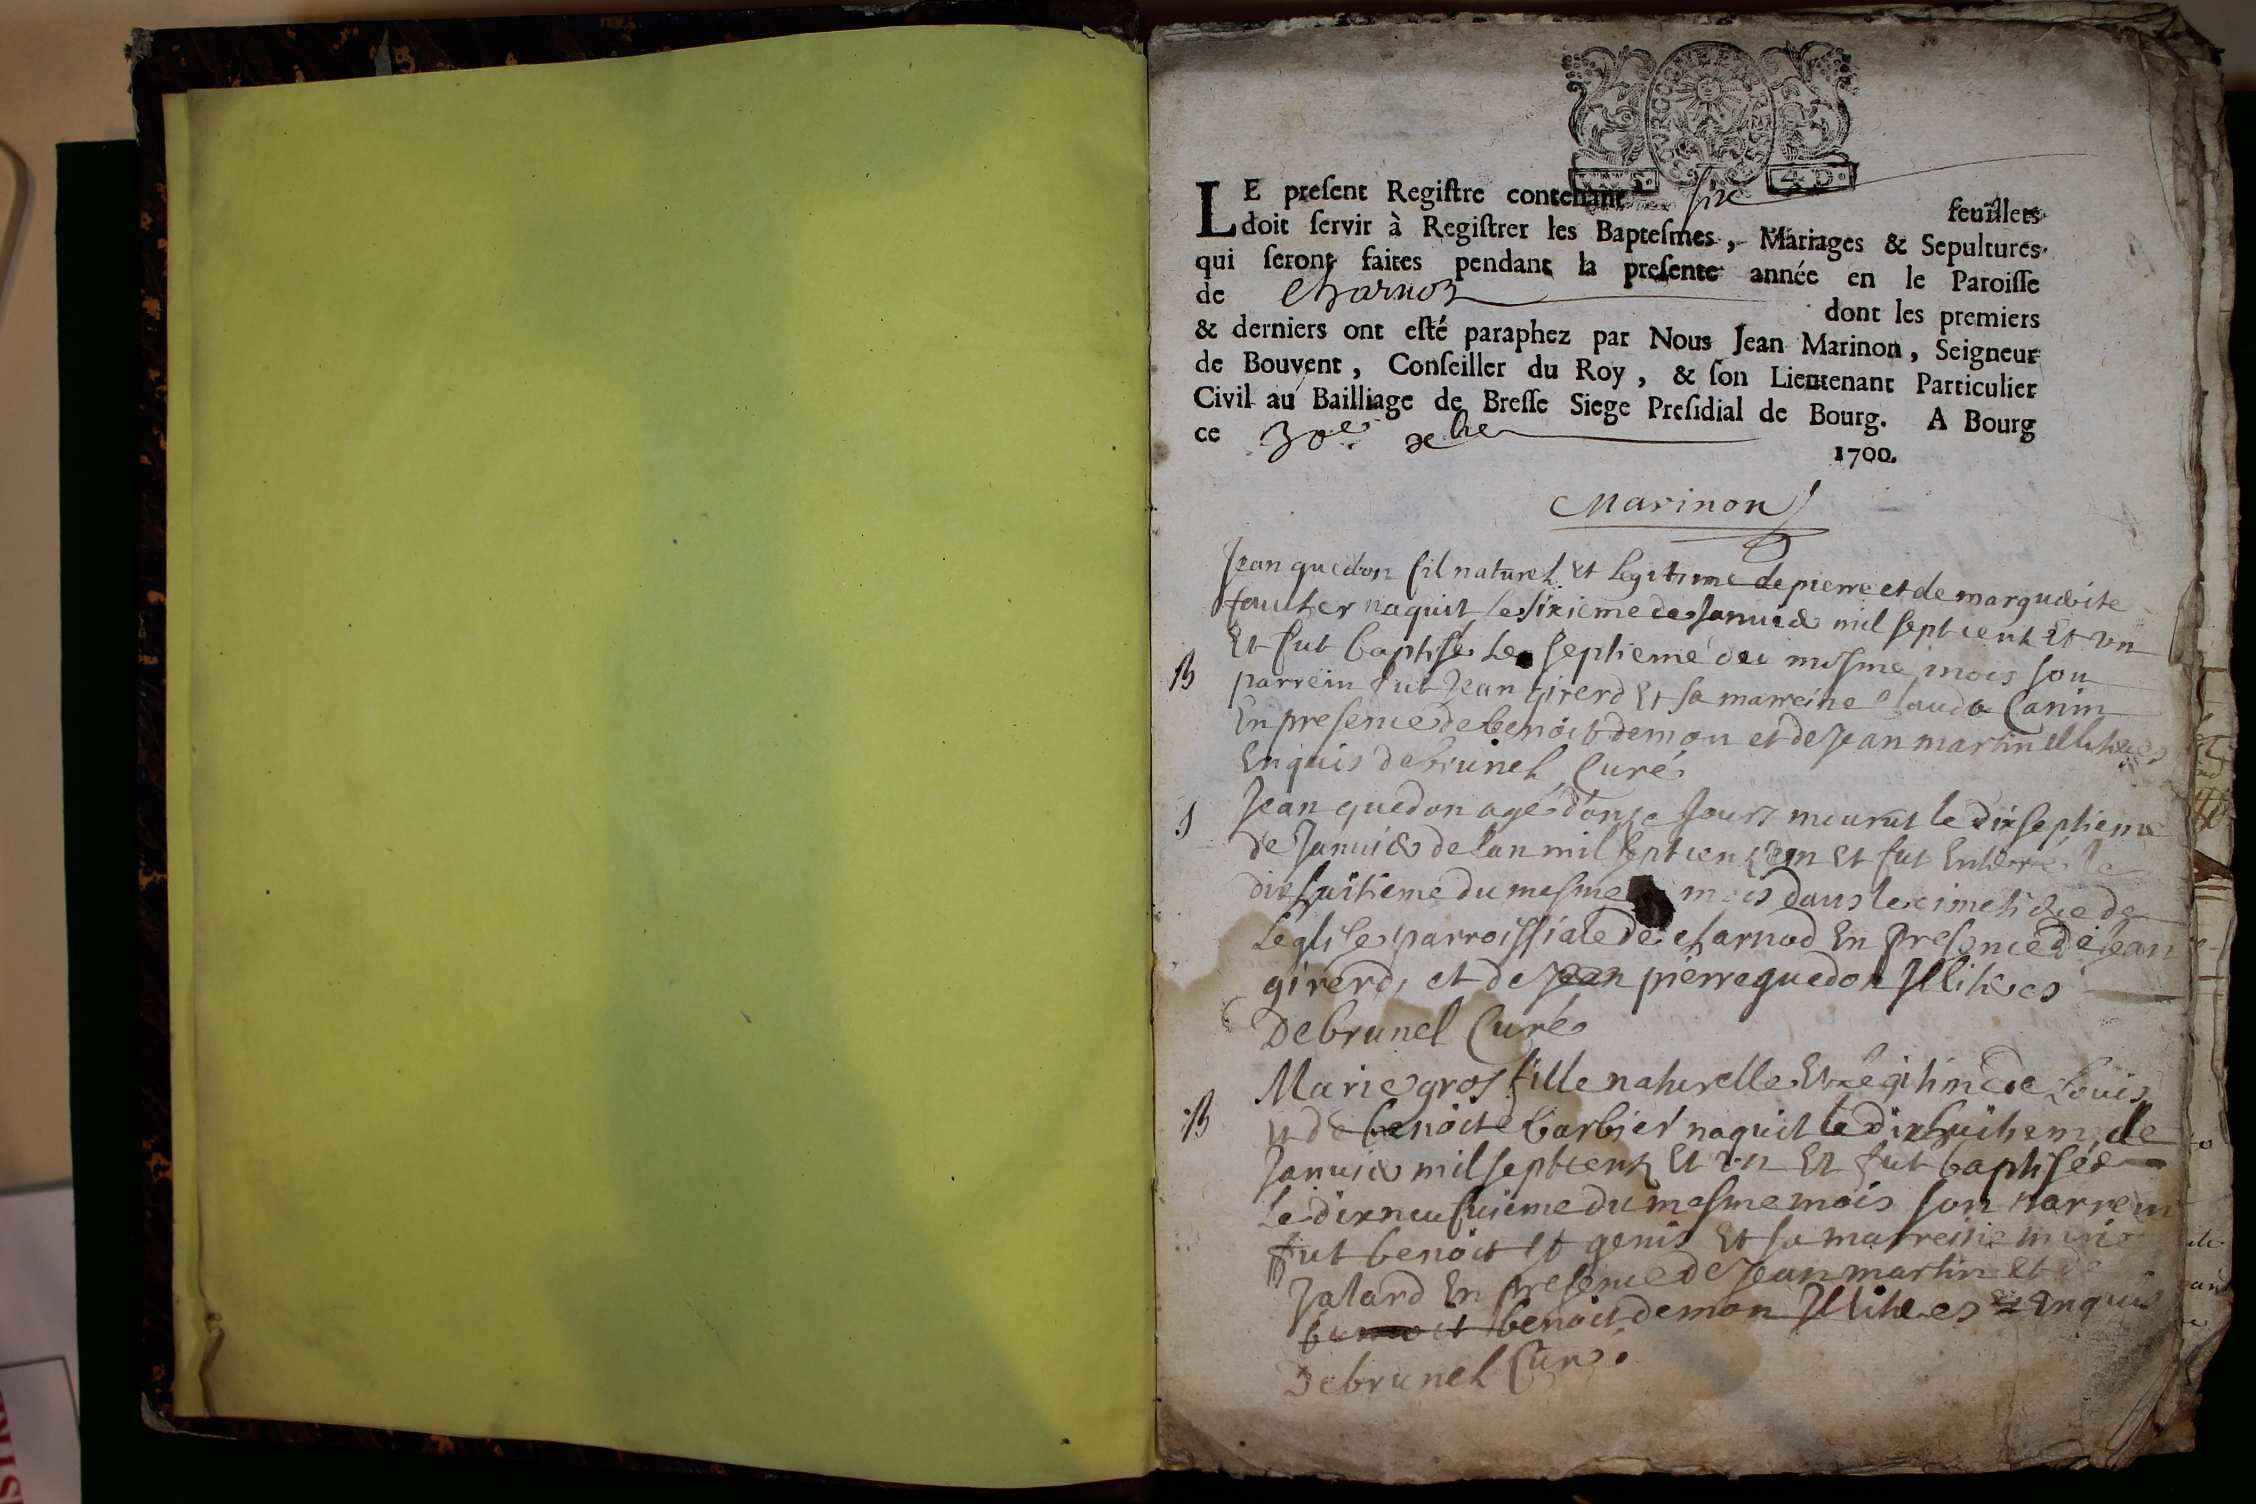 BOURGOGNE
4.D.
LE preſent Regiſtre contenant six feuillets
doit ſervir à Regiſtrer les Bapteſmes, Mariages & Sepultures
qui ſeront faites pendant la preſente année en le Paroiſſe
de Charnoz dont les premiers
& derniers ont eſté paraphez par Nous Jean Marinon, Seigneur
de Bouvent, Conſeiller du Roy, & ſon Lieutenant Particulier
Civil au Bailliage de Breſſe Siege Preſidial de Bourg. A Bourg
ce 30e xbre 1700.
Marinon
Jean quedon fil naturel et legitime de pierre et de marguerite
fautier naquit le sixieme de Janvier mil sept cent et vn
B
Et fut baptisé le septieme du mesme mois son
parrein fut Jean girerd Et sa marreine Clauda Canin
En presence de benoit demon et de Jean martin Illiteres
Enquis debrunel Curé
S
Jean quedon agé d'onze Jours mourut le dixseptieme
de Janvier de lan mil sept cent et vn Et fut Enterré le
dixhuitieme du mesme mois dans le cimetiere de
Leglise parroissiale de charnod En presence de Jean
girerd, et de Jean pierre quedon Illiteres
Debrunel Curé
B
Marie gros fille naturelle Et legitime de Louis
et de benoite barbier naquit le dixhuitieme de
Janvier mil sept cent Et vn Et fut baptisée
Le dixneufuieme du mesme mois son parrein
fut benoit genis Et sa marreine marie
Jalard En presence de Jean martin et de
benoit benoit demon Illiteres et Enquis
Debrunel Curé